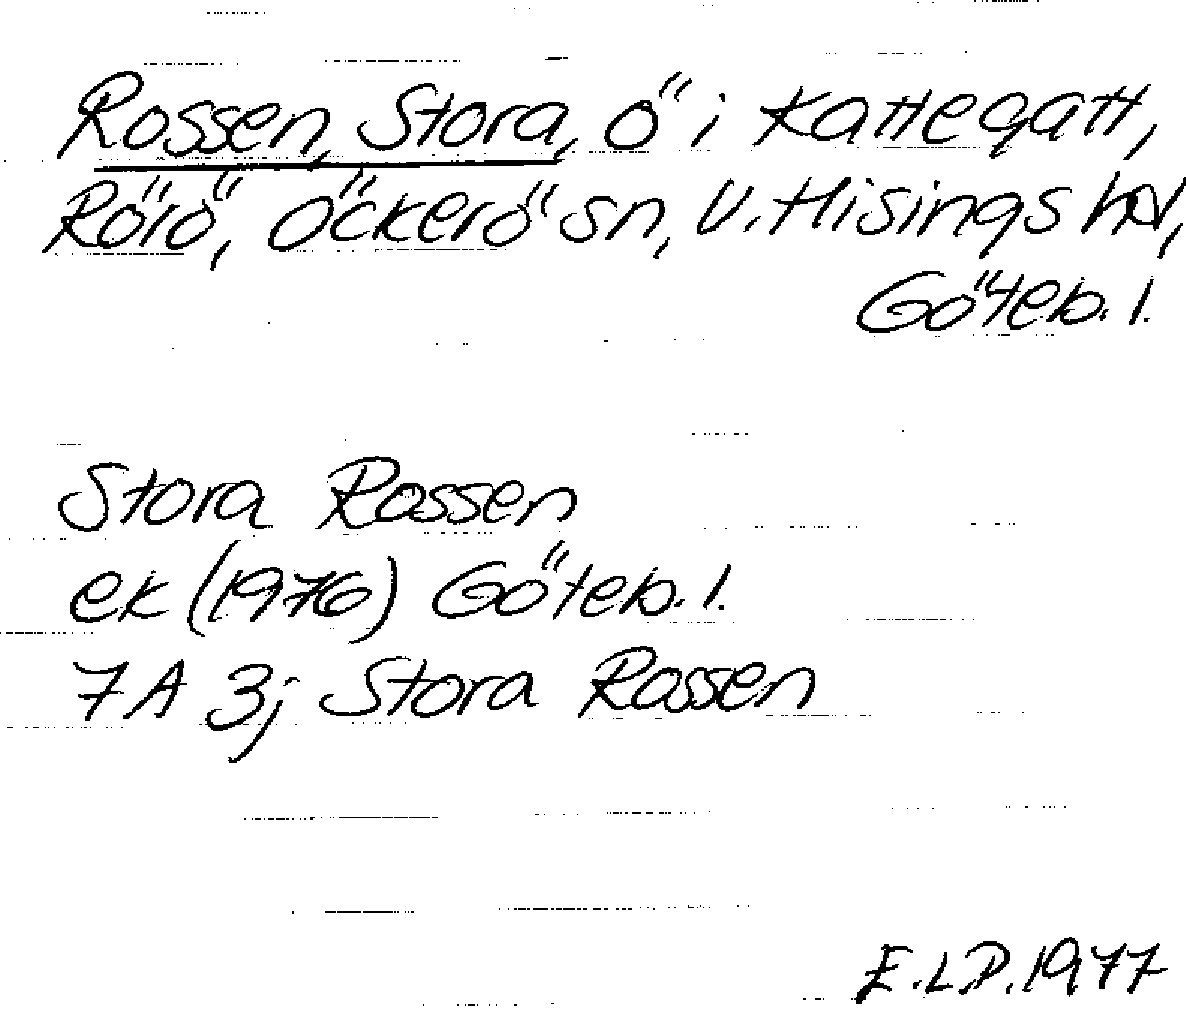 Rossen, Stora, ö i Kattegatt,
Rörö, Öckerö sn, V. Hisings hd,
Göteb. l.
Stora Rossen
ek (1976) Göteb. l.
7A 3j Stora Rossen
E.L.P. 1977